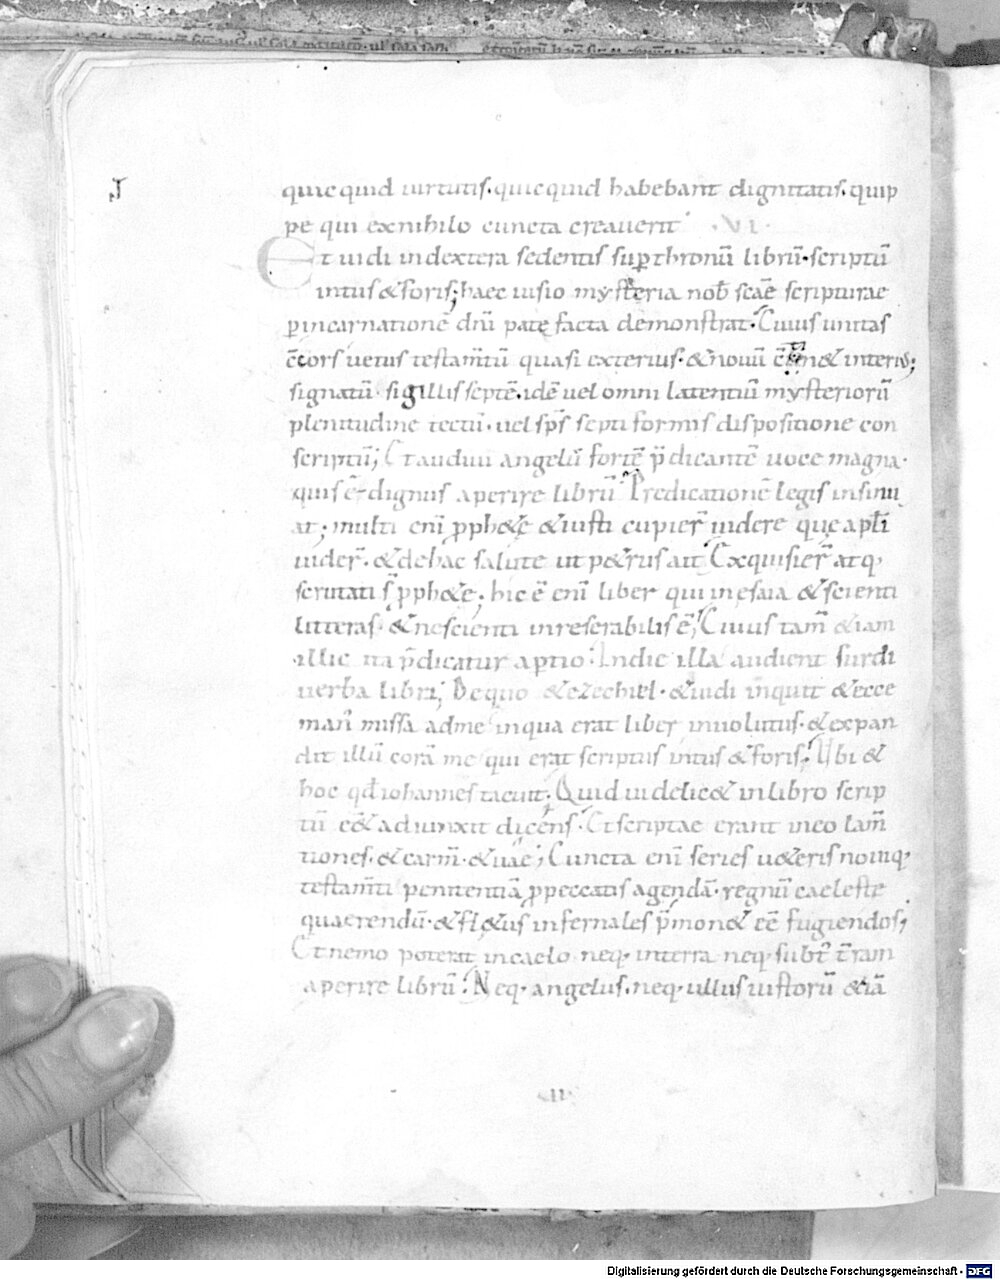 quicquid uirtutis. quicquid habebant dignitatis. quip
pe qui ex nihilo cuncta creauerit · VI ·
Et uidi indextera sedentis sup thronū librū. scriptū
intus & foris; haec uisio mysteria nob scāe scripturae
p incarnationē dni patę facta demonstrat. Cuius unitas
uetus testamtū quasi exterius. & nouū interius;
signatū sigillis septē. idē uel omni latentiū mysteriorū
plenitudine tectū. uel sps septiformis dispositione con
scriptū; Et audiui angelū fortē p̄dicantē uoce magna.
quis ē dignus aperire librū. Predicationē legis insinu
at; multi eni pph&ę & iusti cupier̄ uidere que apłi
uider̄. & de hac salute ut p&rus ait Exquisier̄ atq
scrutati s̄ pph&ę; hic ē eni liber qui in esaia & scienti
litteras & nescienti inreserabilis ē; Cuius tam̄ &iam
illic ita p̄dicatur aptio. In die illa audient surdi
uerba libri; De quo & ezechiel. & uidi inquit & ecce
man missa ad me in qua erat liber inuolutus. & expan
dit illū corā me qui erat scriptus intus & foris; Ubi &
hoc qd iohannes tacuit. Quid uidelic& in libro scrip
tū ēe& adiunxit dicens. Et scriptae erant in eo lam̄
tiones. & carm̄. & uāe; Cuncta eni series u&eris nouiq
testamti penitentiā p peccatis agendā. regnū caeleste
quaerendū. & fl&us infernales p̄mon& ēe fugiendos;
Et nemo poterat in caelo neq in terra neq subt̄ t̄ram
aperire librū. Neq angelus. neq ullus iustorū &iā
II
Digitalisierung gefördert durch die Deutsche Forschungsgemeinschaft - DFG